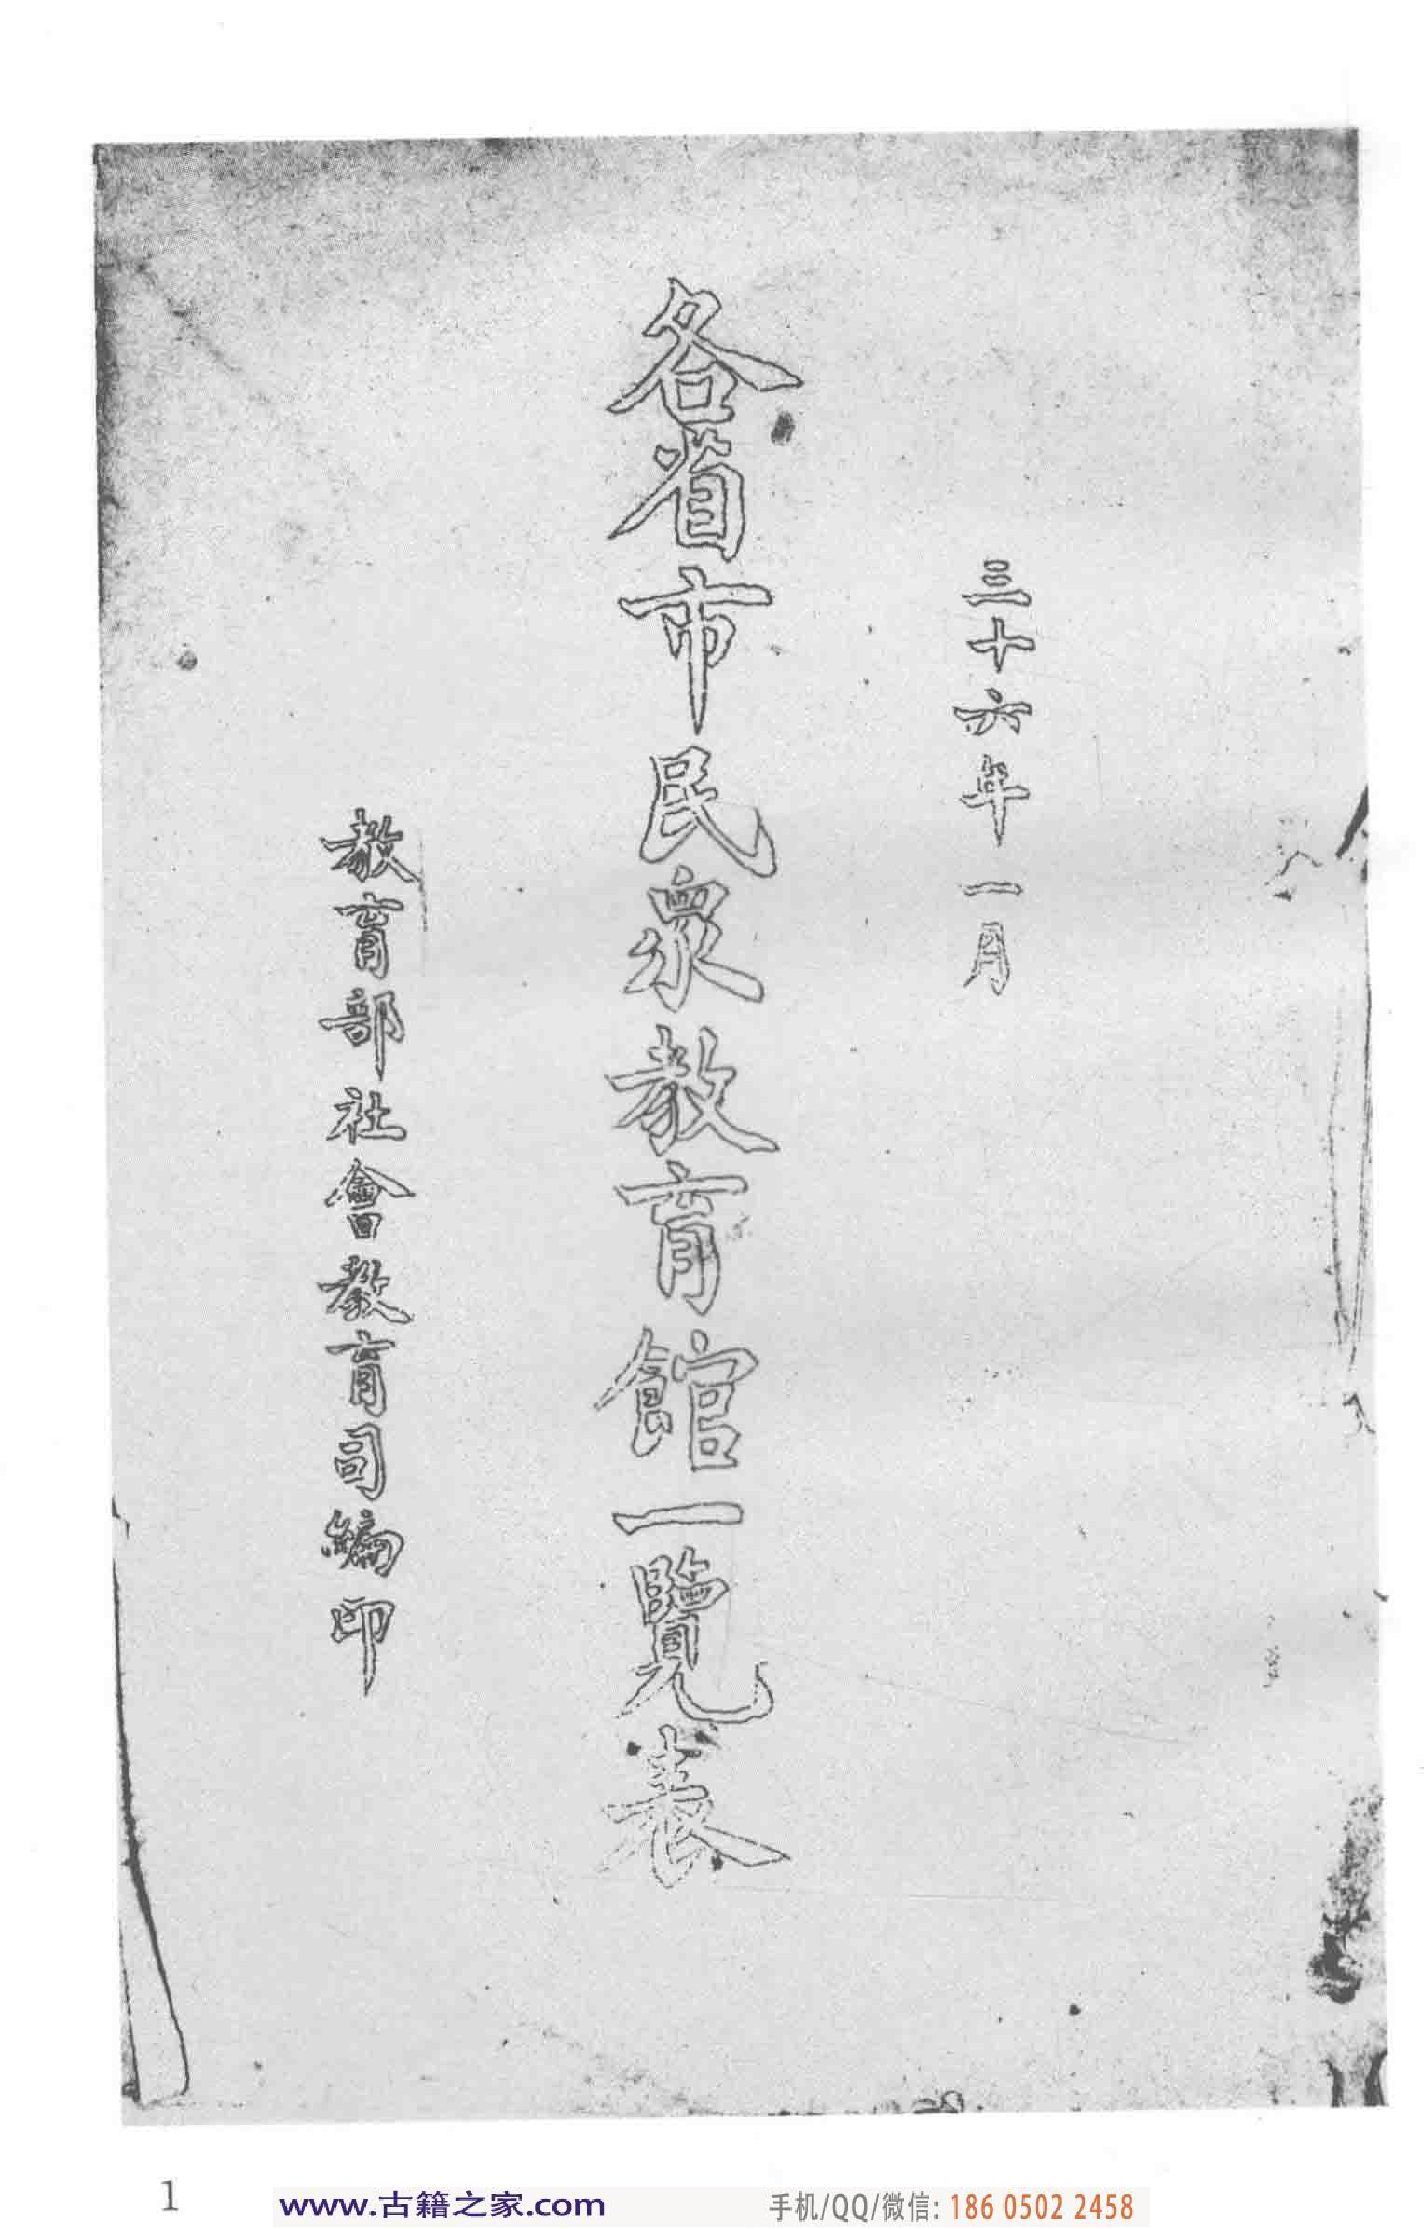 三十六年一月
各省市民眾教育館一覽表
教育部社會教育司編印
1
www.古籍之家.com
手机/QQ/微信: 186 0502 2458